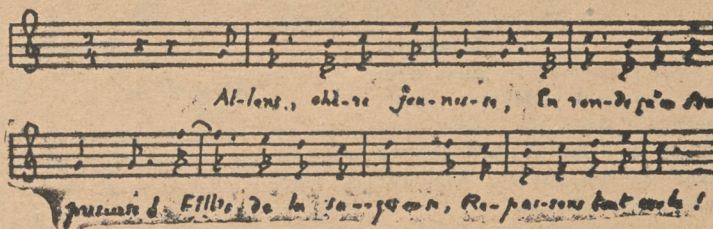 Al-lons, chè-re jeu-nes-se, En ron-de qu'on
Fil-les de la sa-ges-se, Re-pas-sons tout cela !